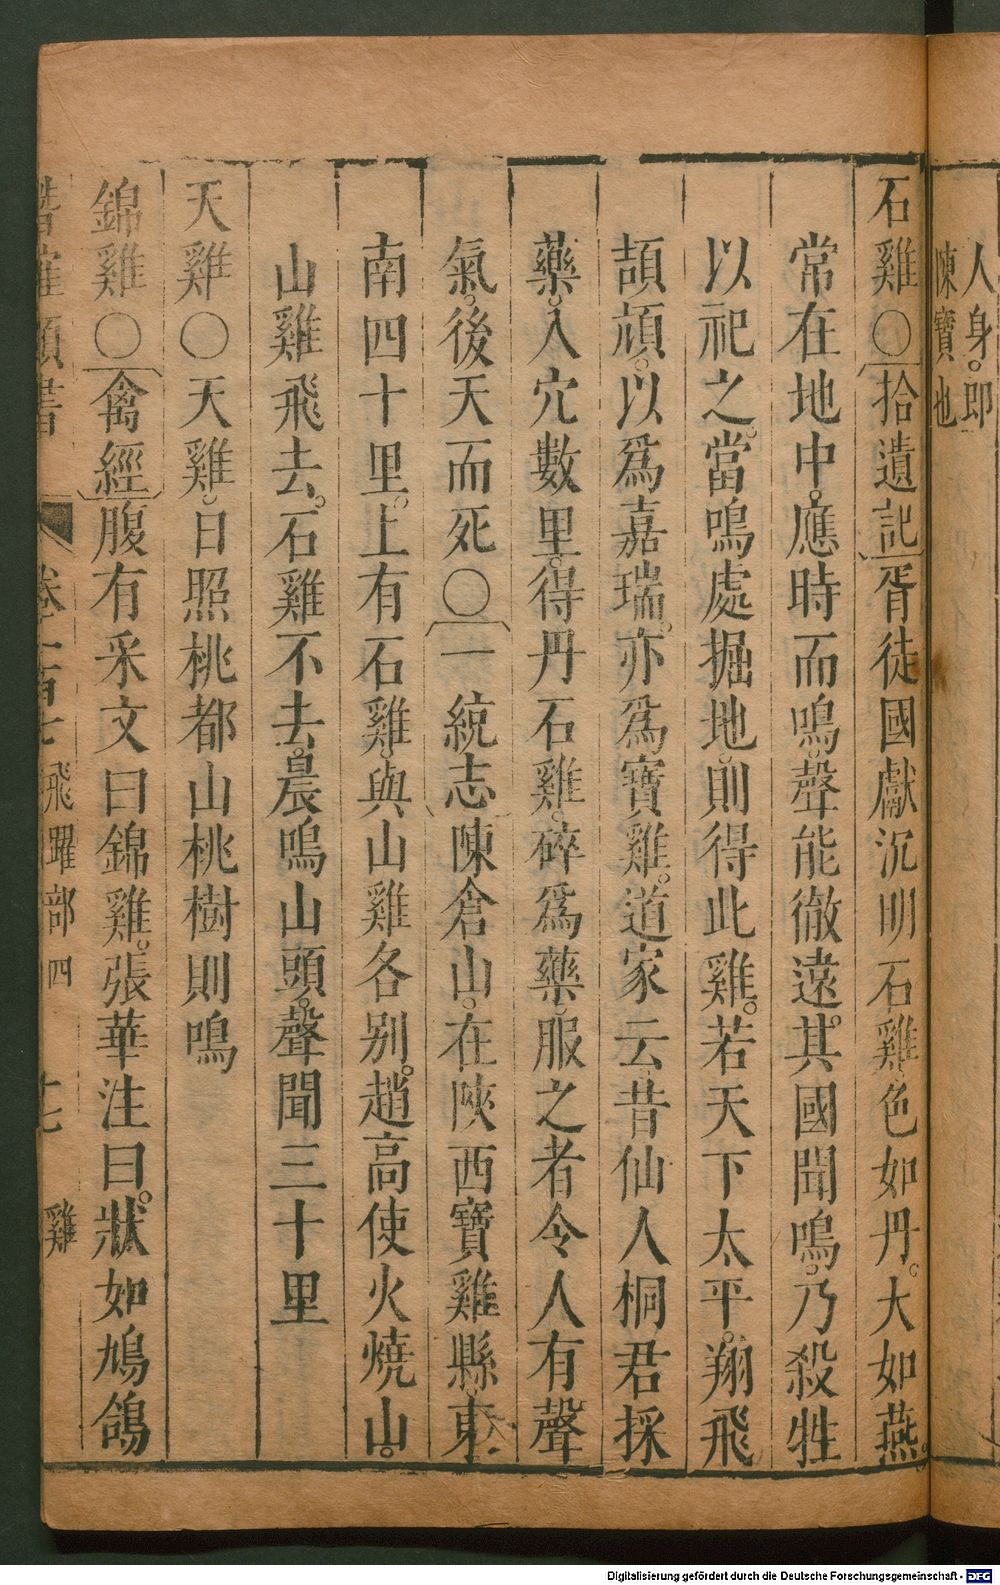 人身。即
陳寶也
石雞〇拾遺記胥徒國獻沉明石雞。色如丹。大如燕。
常在地中。應時而鳴。聲能徹遠。其國聞鳴。乃殺牲
以祀之。當鳴處掘地。則得此雞。若天下太平。翔飛
頡頏。以爲嘉瑞。亦爲寶雞。道家云昔仙人桐君採
藥。入穴數里。得丹石雞。碎爲藥。服之者令人有聲
氣。後天而死〇一統志陳倉山。在陜西寶雞縣。東
南四十里。上有石雞。與山雞各别。趙高使火燒山。
山雞飛去。石雞不去。晨鳴山頭。聲聞三十里
天雞〇天雞。日照桃都山桃樹則鳴
錦雞〇禽經腹有采文曰錦雞。張華注曰。狀如鳩鴿
潛確類書 卷一百七 飛躍部四 十七 雞
Digitalisierung gefördert durch die Deutsche Forschungsgemeinschaft - DFG